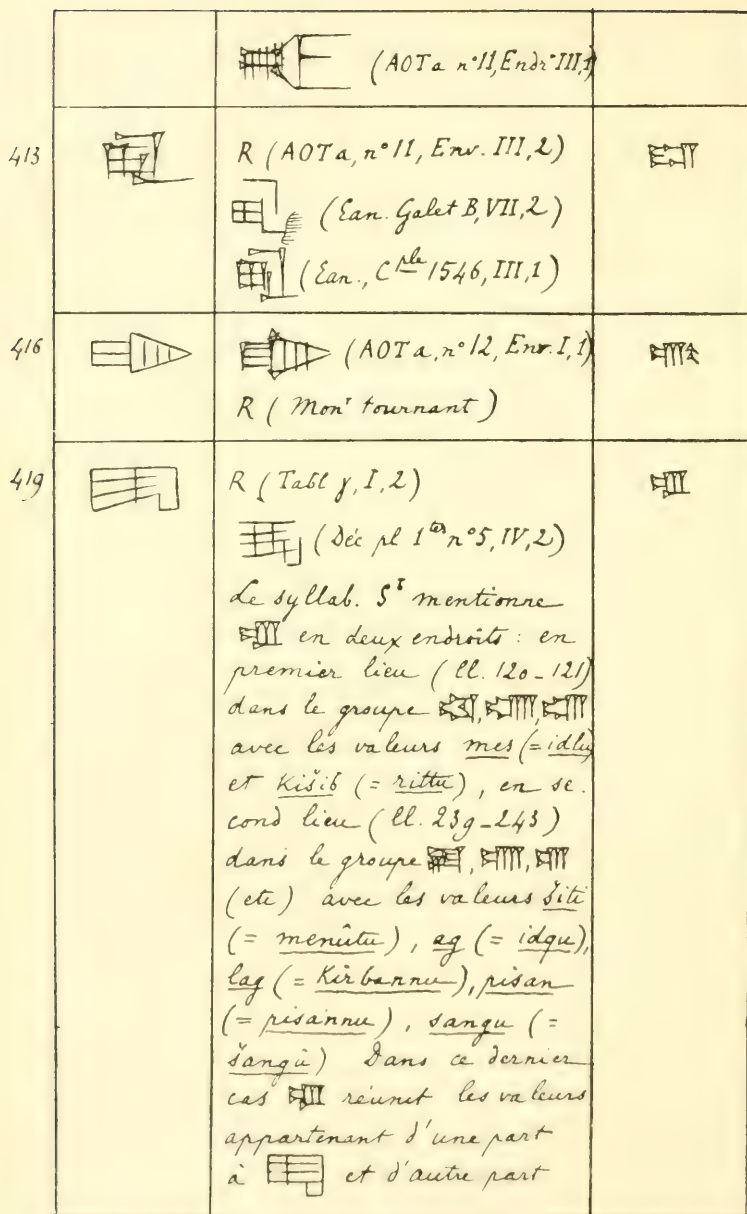 (AOTa n° 11, Endr III, 1)
413 R (AOTa, n° 11, Env. III, 2)
(Ean. Galet B, VII, 2)
(Ean., C^ple 1546, III, 1)
416 (AOTa, n° 12, Env. I, 1)
R (Mon^t tournant)
419 R (Tabl γ, I, 2)
(Déc pl 1^ter n° 5, IV, 2)
Le syllab. S^I mentionne
en deux endroits : en
premier lieu (ll. 120-121)
dans le groupe , ,
avec les valeurs mes (= idlu)
et Kišib (= rittu), en se-
cond lieu (ll. 239-243)
dans le groupe , ,
(etc) avec les valeurs šiti
(= menûtu), ag (= idqu),
lag (= Kirbannu), pisan
(= pisannu), sangu (=
šangû) Dans ce dernier
cas réunit les valeurs
appartenant d'une part
à et d'autre part